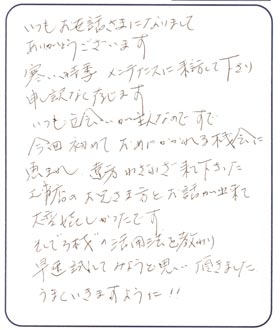 いつもお世話さまになりまして
ありがとうございます
寒い時季 メンテナンスに来訪して下さり
申訳なく存じます
いつも 立会いが主人なのですが
今回 初めて お目にかかれる機会に
恵まれ 遠方 わざわざ来て下さった
工務店の お兄さま方と お話が出来て
大変 嬉しかったです
そして 機の活用法を教わり
早速 試してみようと思い 頂きました
うまくいきますように!!